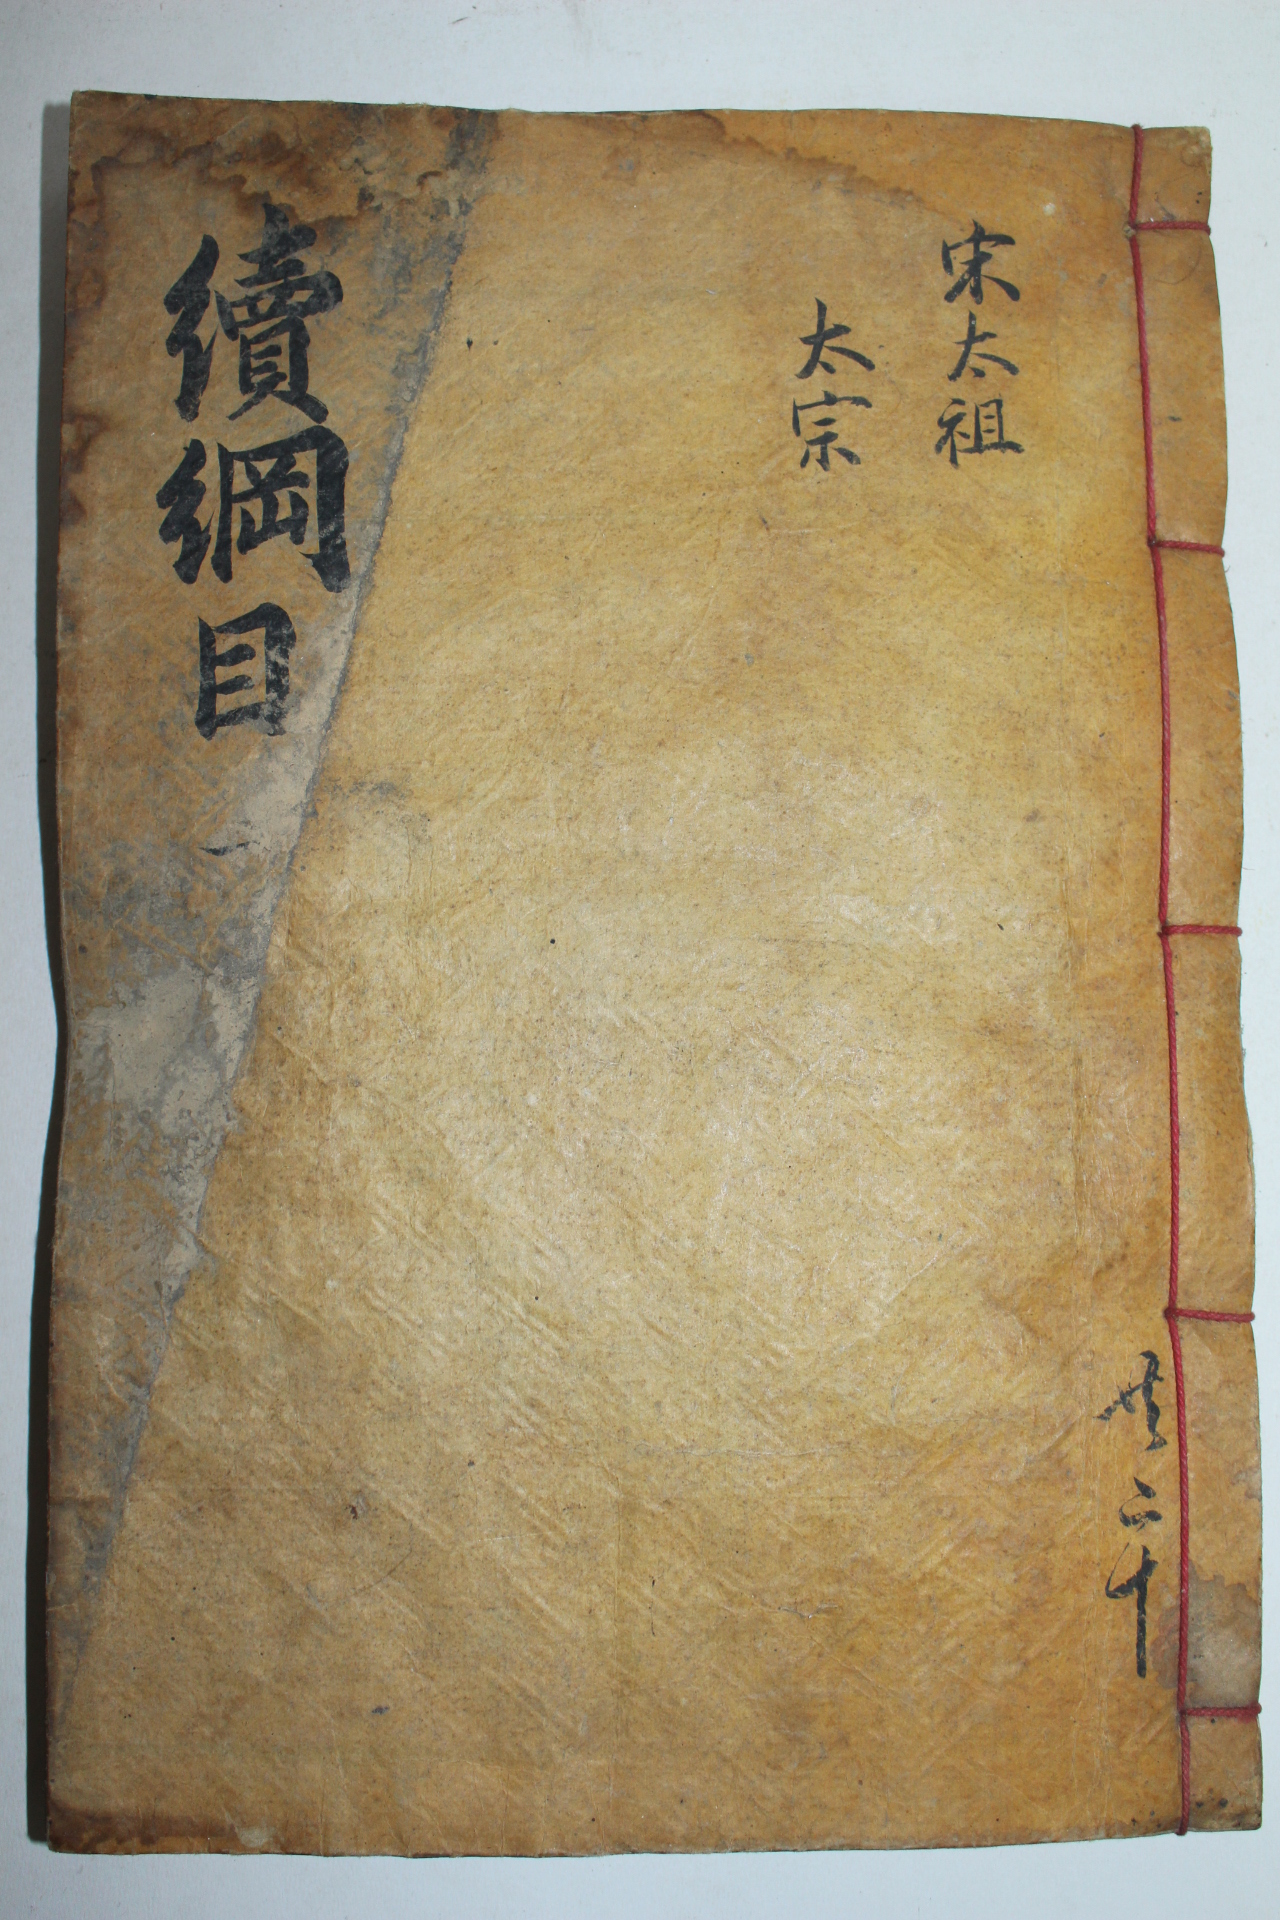 宋太祖
太宗
續綱目 一
共二十